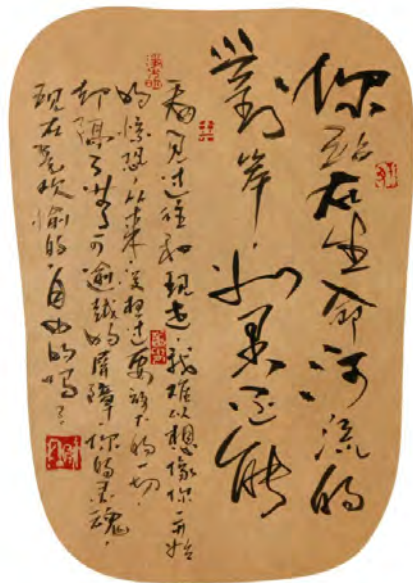 你站在生命河流的
對岸，如果还能
看见过往和现世，我难以想像你一开始
的惊恐，从未设想过要放下的一切，
却隔了无可逾越的屏障，你的灵魂，
现在是欢愉的，自由的吗？